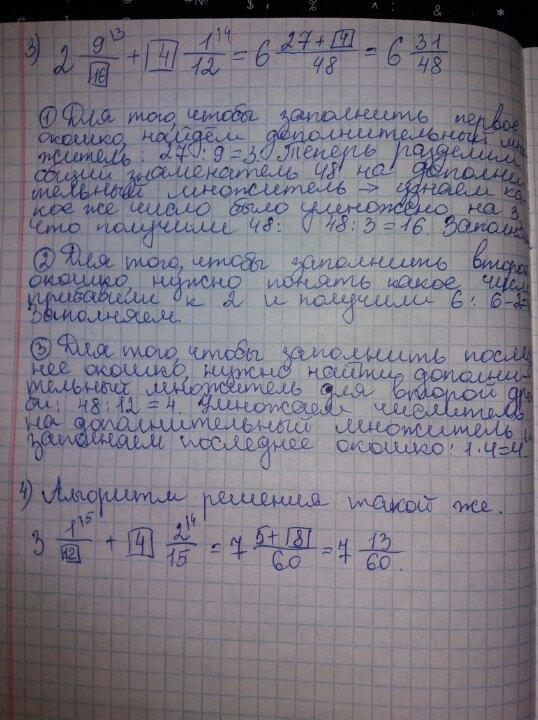 3) 2 9^{\3}/[16] + [4] 1^{\4}/12 = 6 (27+[4])/48 = 6 31/48
① Для того, чтобы заполнить первое
окошко, найдём дополнительный мно-
житель: 27 : 9 = 3. Теперь разделим
общий знаменатель 48 на дополни-
тельный множитель → узнаем ка-
кое же число было умножено на 3,
что получили 48: 48 : 3 = 16.
② Для того, чтобы заполнить второе
окошко, нужно понять какое число
прибавили к 2 и получили 6: 6-2=
Заполняем.
③ Для того, чтобы заполнить послед-
нее окошко, нужно найти дополни-
тельный множитель для второй дро-
би: 48 : 12 = 4. Умножаем числитель
на дополнительный множитель и
заполняем последнее окошко: 1·4=4.
4) Алгоритм решения такой же.
3 1^{\5}/[12] + [4] 2^{\4}/15 = 7 (5+[8])/60 = 7 13/60.